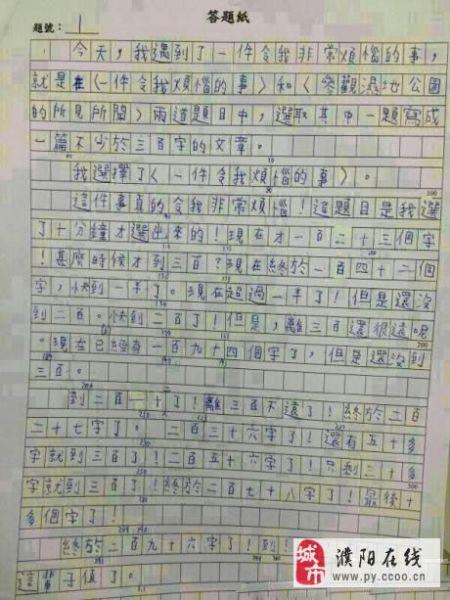 答題紙
題號：1
今天，我遇到了一件令我非常煩惱的事，
就是在〈一件令我煩惱的事〉和〈參觀濕地公園
的所見所聞〉兩道題目中，選取其中一題寫成
一篇不少於三百字的文章。
我選擇了〈一件令我煩惱的事〉。
這件事真的令我非常煩惱！這題目是我選
了十分鐘才選出來的！現在才一百二十三個字
！甚麼時候才到三百？現在終於一百四十二個
字，快到一半了。現在超過一半了！但是還沒
到二百。快到二百了！但是，離三百還很遠呢
。現在已經有一百九十四個字了，但是還沒到
三百。
到二百一十了！離三百不遠了！終於二百
二十七字了。二百三十六字了！還有五十多
字就到三百了！二百五十六字了！只剩三十多
字就到三百了！終於二百七十八字了！最後十
多個字了！
終於二百九十六字了！到！
這
值了。
城市
濮阳在线
www.py.ccoo.cn